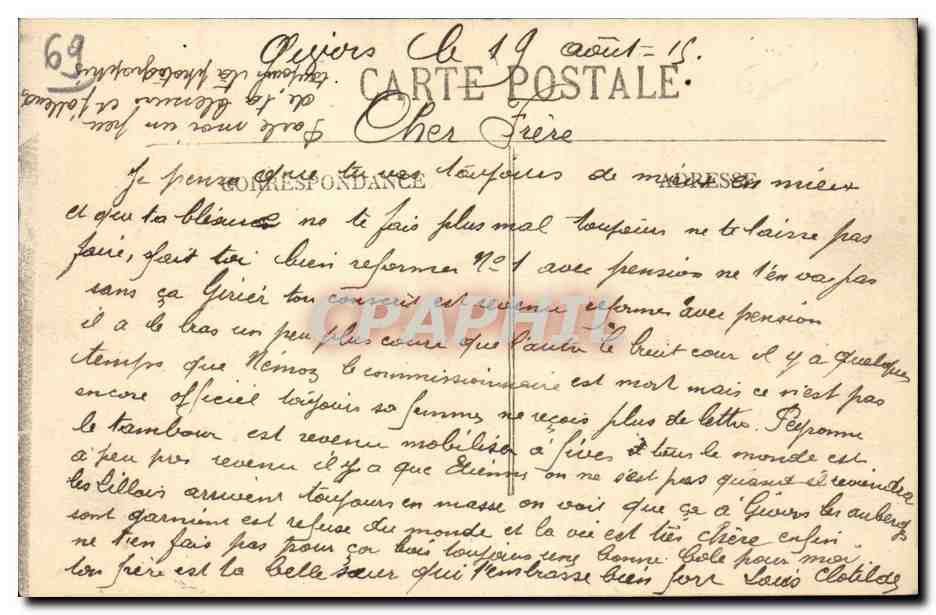 69
Givors le 19 août = 15.
CARTE POSTALE
Parle moi un peu
de ta blessure et
toujours ta photographie
Cher Frère
CORRESPONDANCE
ADRESSE
Je pense que tu vas toujours de mieux en mieux
et que ta blésure ne te fais plus mal toujours ne te laisse pas
faire, fait toi bien reformer N° 1 avec pension ne t'en va pas
sans ça Girier ton conscrit est revenu reformer avec pension
il a le bras un peu plus court que l'autre le bruit cour il y a quelque
temps que Némoz le commissionnaire est mort mais ce n'est pas
encore officiel toujours sa femme ne reçois plus de lettre. Peyronnu
le tambour est revenu mobiliser à Fives tous le monde est
à peu pres revenu il y a que Etienne on ne s'est pas quant il reviendra
les Lillois arrivent toujours en masse on voit que ça à Givors les auberges
sont garnient est refuse du monde et la vie est très chère enfin
ne t'en fais pas pour ça bois toujours une bonne bole pour moi
ton frère est ta belle sœur qui t'embrasse bien fort Louis Clotilde
CPAPHIL